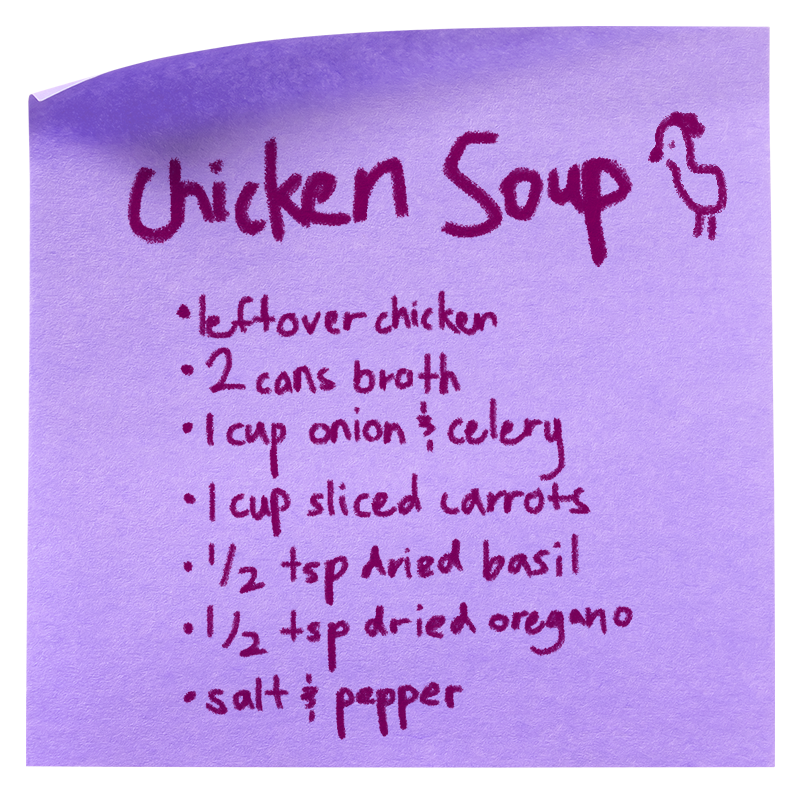 Chicken Soup
• leftover chicken
• 2 cans broth
• 1 cup onion & celery
• 1 cup sliced carrots
• 1/2 tsp dried basil
• 1/2 tsp dried oregano
• salt & pepper